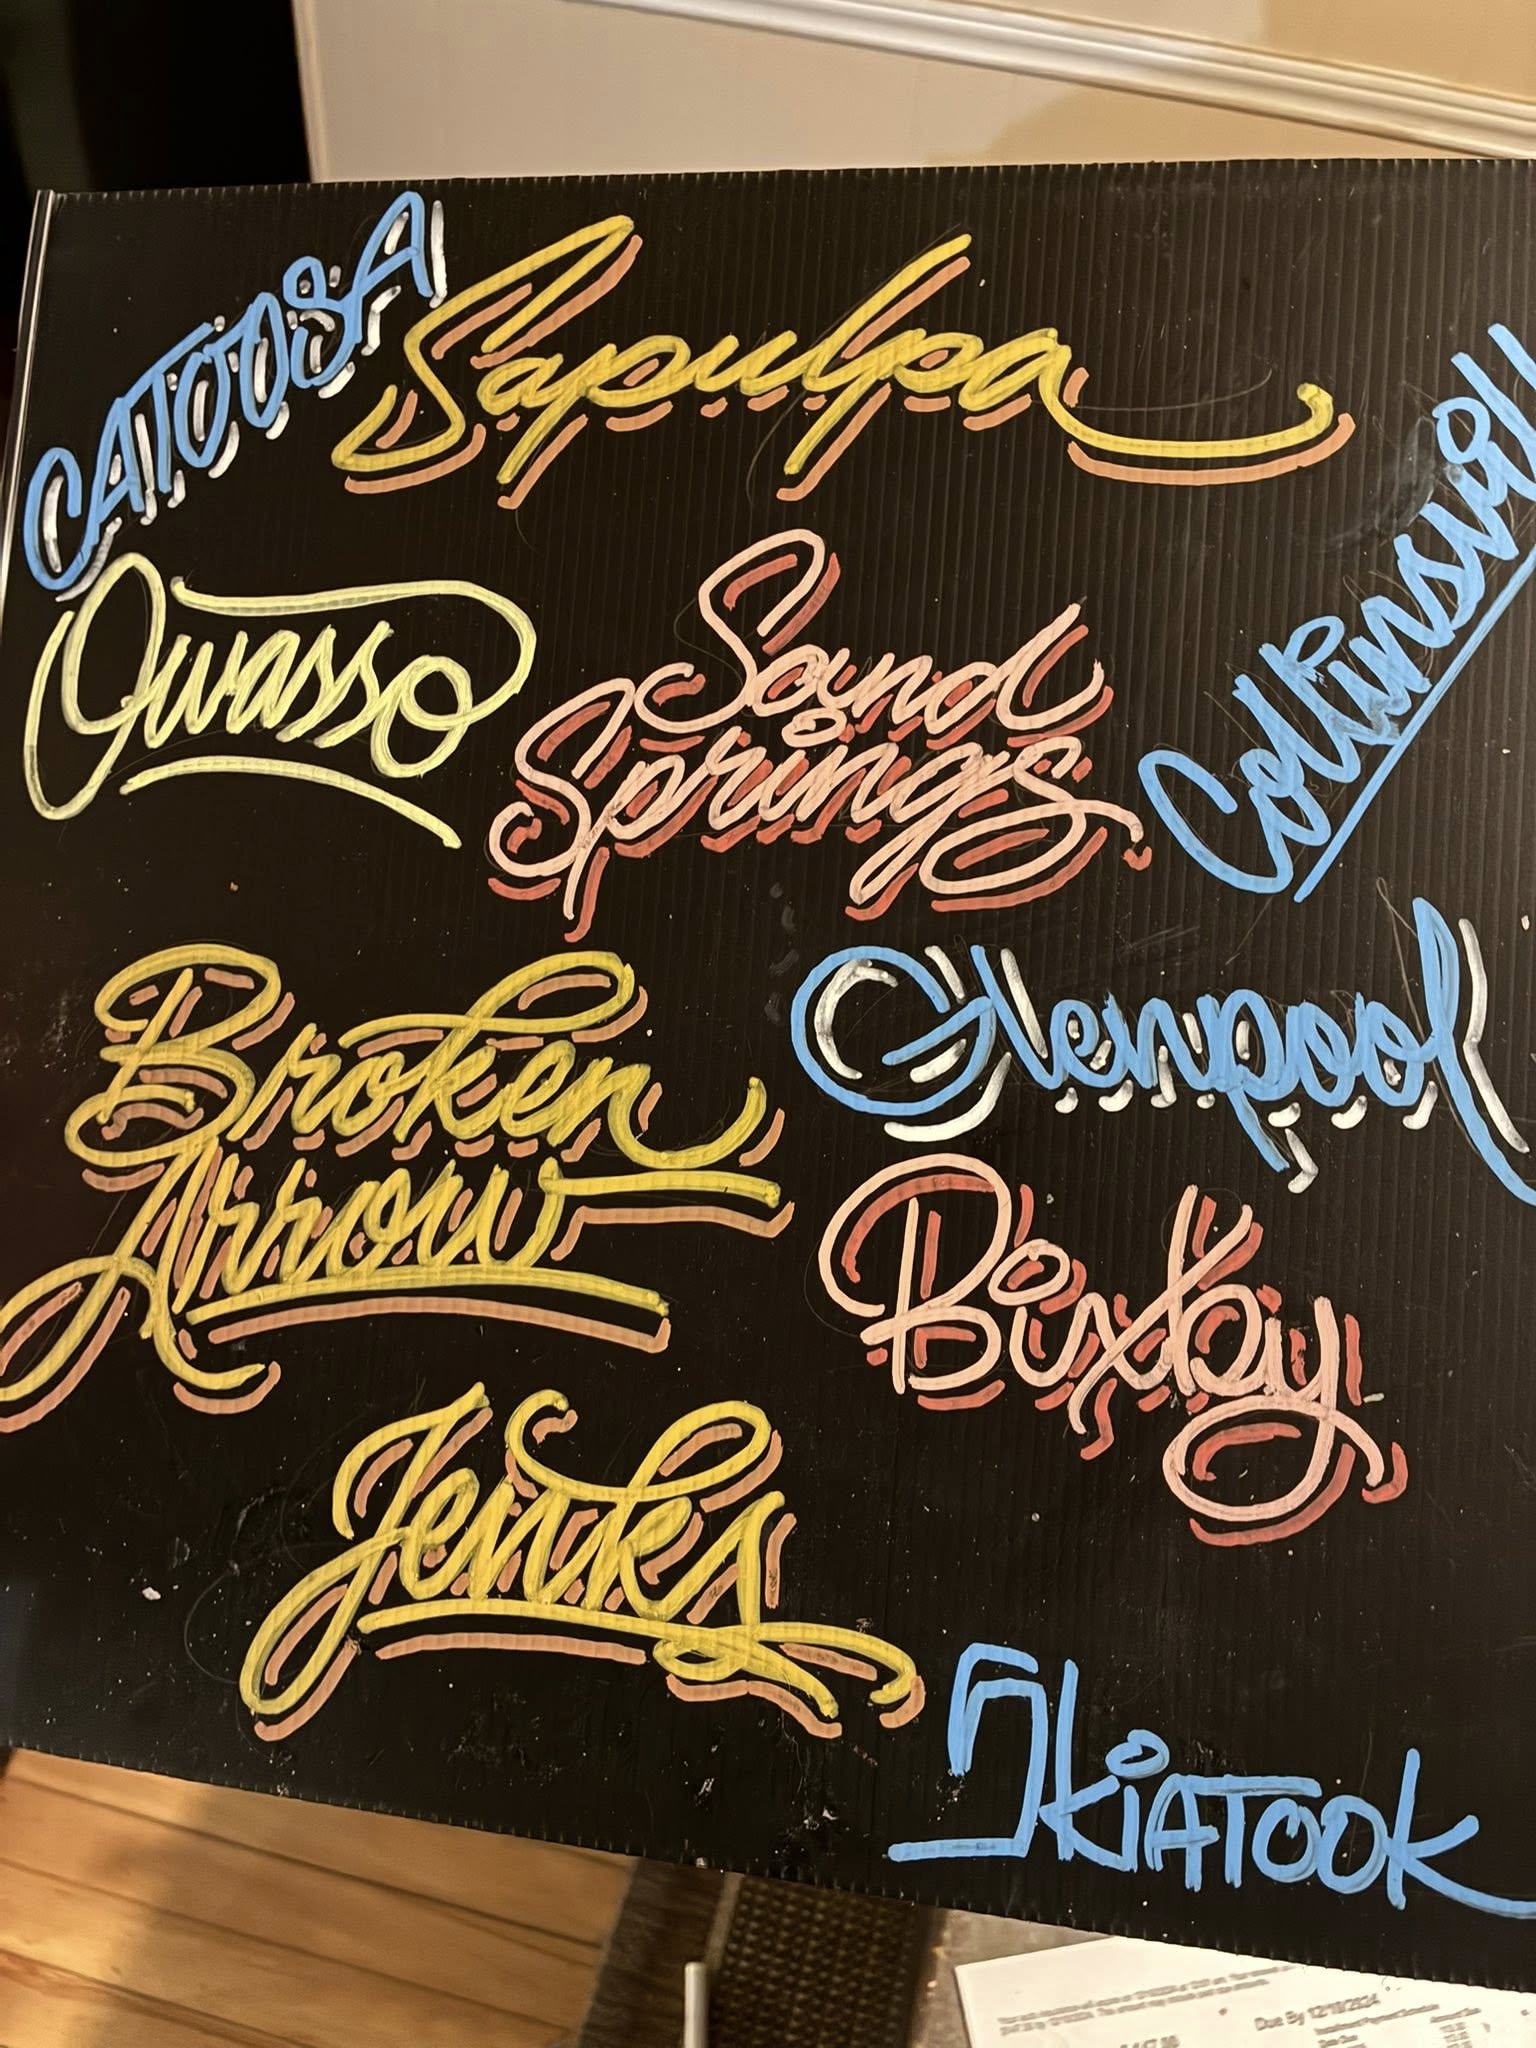 CATOOSA
Sapulpa
Collinsvill
Owasso
Sound
Springs
Broken
Arrow
Glenpool
Bixby
Jenks
SKIATOOK
Due By 12/18/2024